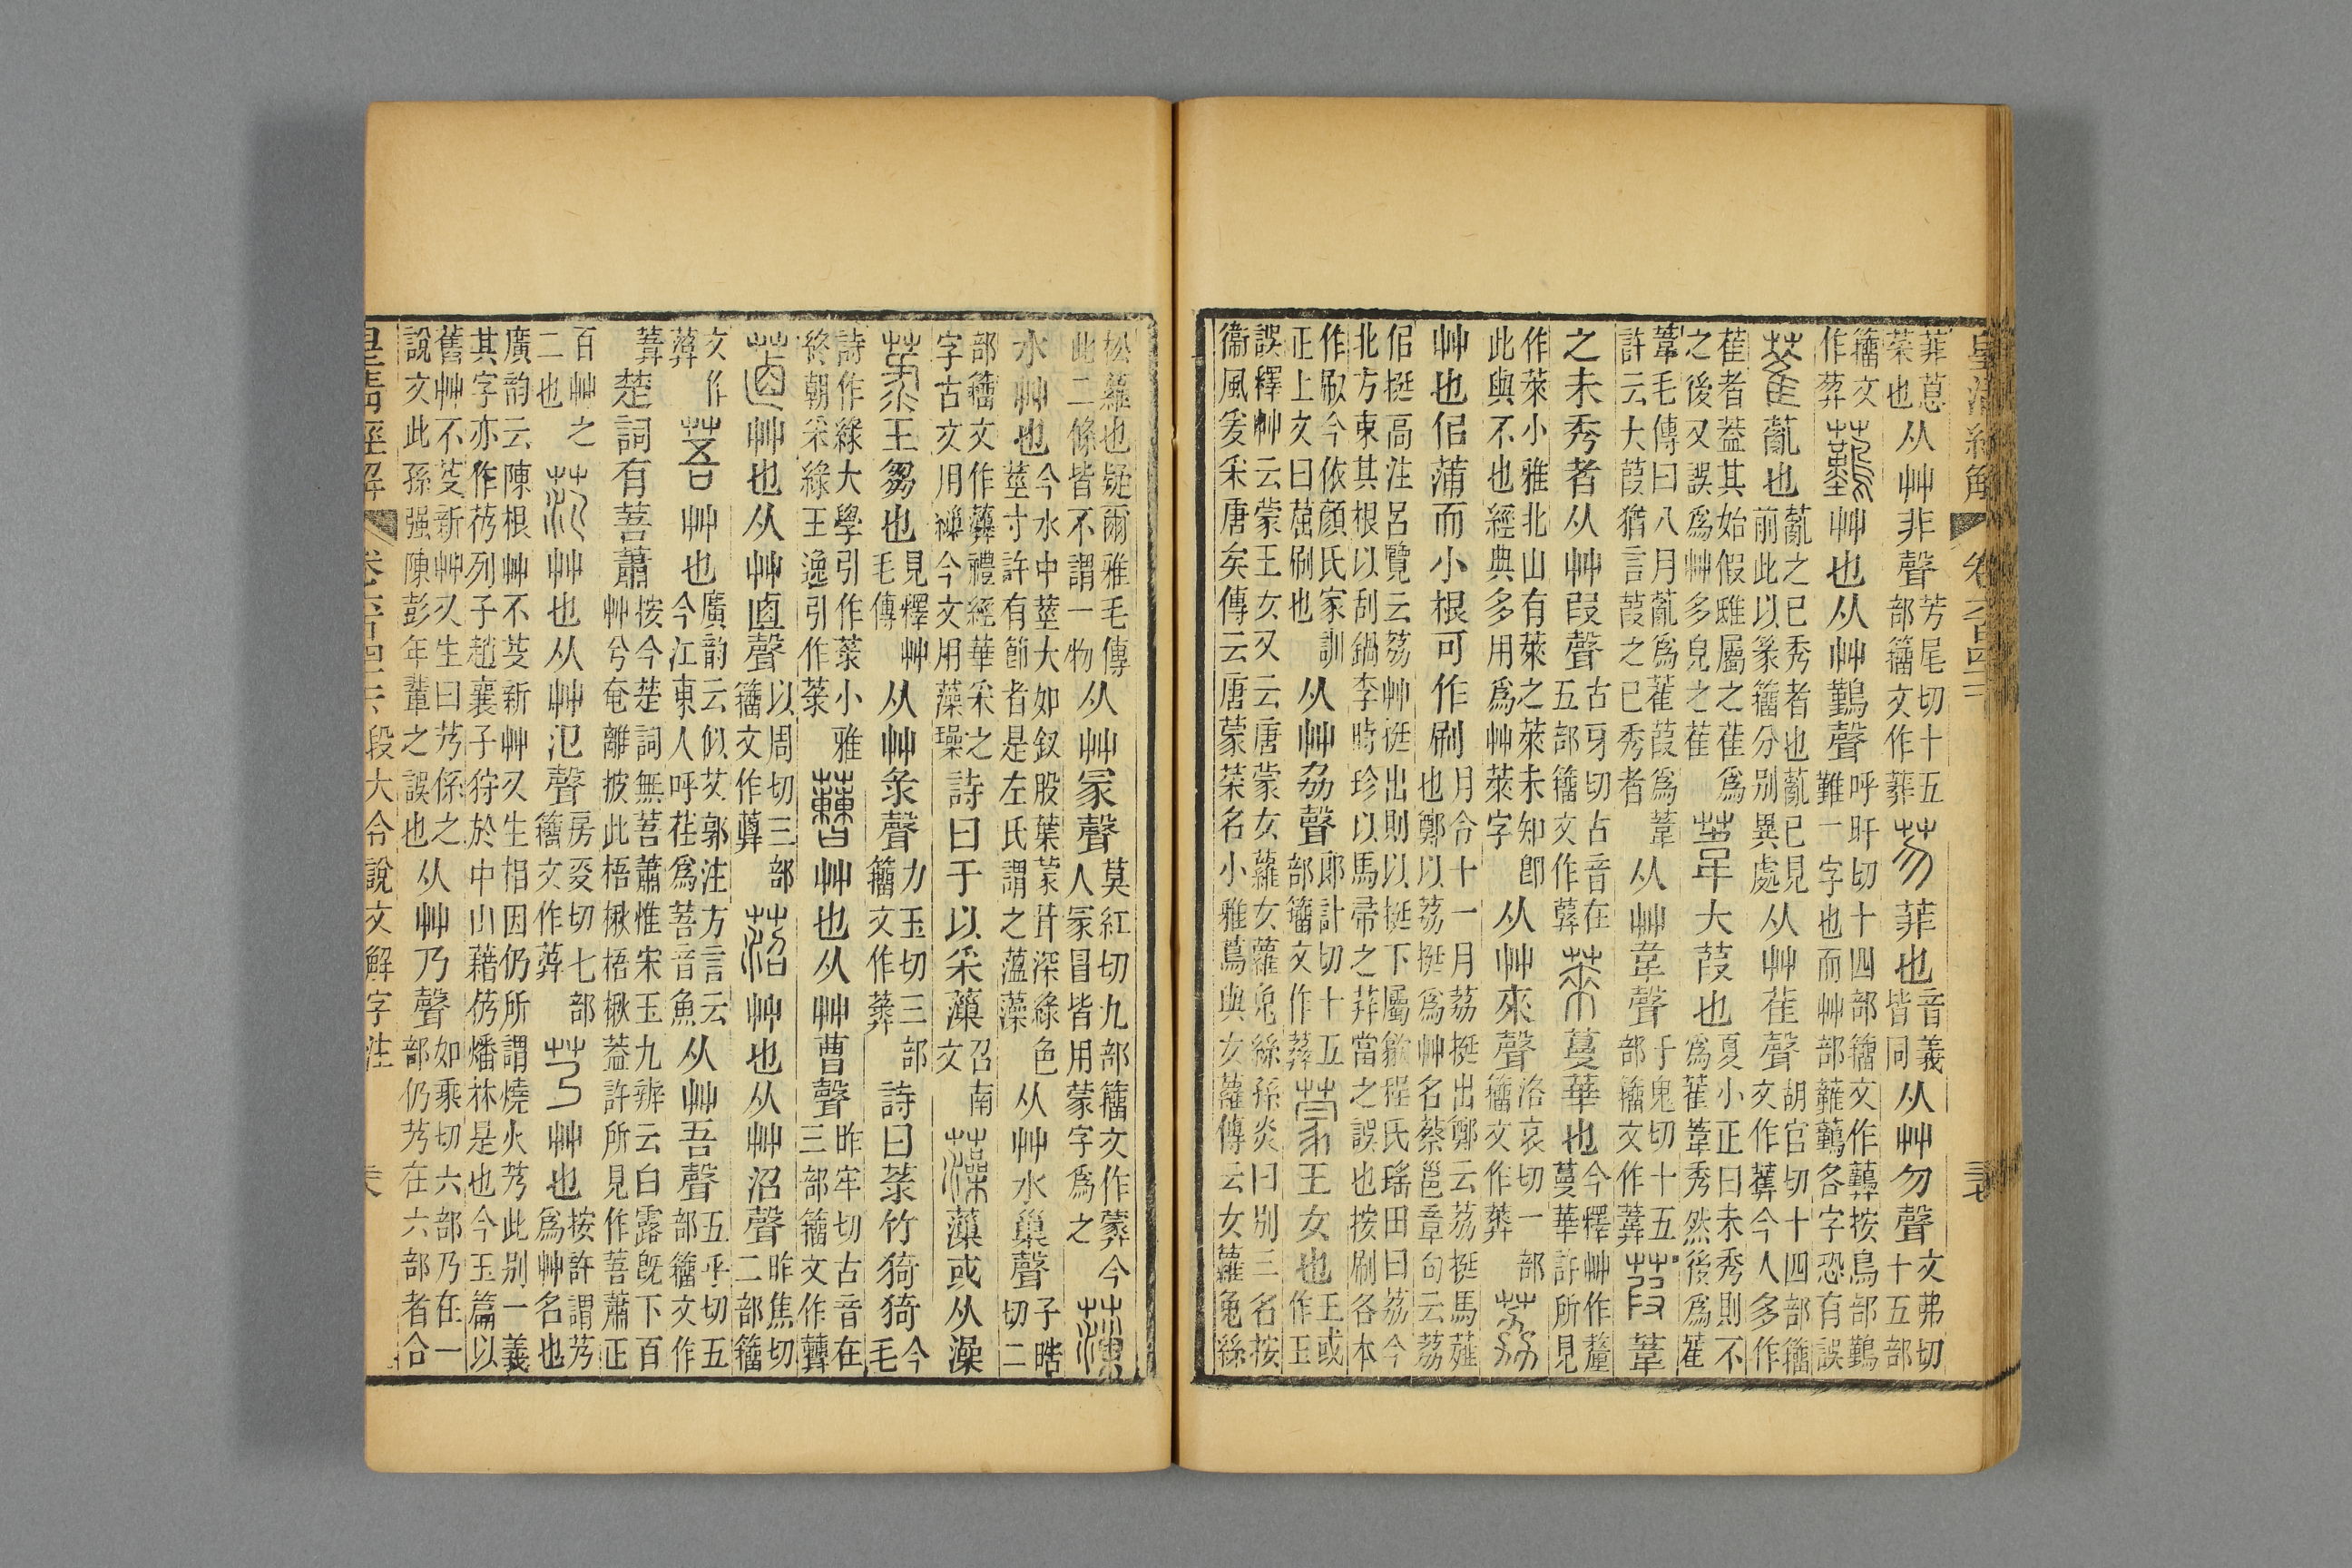 菲蒠菜也从艸非聲芳尾切十五部籒文作芴菲也音義皆同从艸勿聲文弗切十五部
籒文作艸也从艸鷬聲呼旰切十四部籒文作按鳥部鷬難一字也而艸部各字恐有誤
萑薍也薍之已秀者也薍已見前此以篆籒分别異處从艸萑聲胡官切十四部籒文作今人多作
萑者葢其始假雖屬之萑爲之後又誤爲艸多皃之萑葦大葭也夏小正曰未秀則不爲雚葦秀然後爲雚
葦毛傳曰八月薍爲雚葭爲葦許云大葭猶言葭之已秀者从艸韋聲于鬼切十五部籒文作葭葦
之未秀者从艸叚聲古牙切古音在五部籒文作萊蔓華也今釋艸作釐蔓華許所見
作萊小雅北山有萊之萊未知卽此與不也經典多用爲艸萊字从艸來聲洛哀切一部籒文作荔
艸也侣蒲而小根可作刷月令十一月荔挺出鄭云荔挺馬薤也鄭以荔挺爲艸名蔡邕章句云荔
侣挺高注呂覽云荔艸挺出則以挺下屬程氏瑤田曰荔今北方束其根以刮鍋李時珍以馬帚之荓當之誤也按刷各本
作㕞今依顏氏家訓正上文曰䓛刷也从艸劦聲郎計切十五部籒文作蒙王女也王或作玉
誤釋艸云蒙王女又云唐蒙女蘿女蘿兔絲孫炎曰别三名按衞風爰采唐矣傳云唐蒙菜名小雅蔦與女蘿傳云女蘿兔絲
松蘿也疑爾雅毛傳此二條皆不謂一物从艸冡聲莫紅切九部籒文作今人冡冒皆用蒙字爲之薻
水艸也今水中莖大如釵股葉蒙茸深綠色莖寸許有節者是左氏謂之薀藻从艸水巢聲子晧切二
部籒文作禮經華采之字古文用繅今文用藻璪詩曰于以采薻召南文藻薻或从澡
菉王芻也見釋艸毛傳从艸彔聲力玉切三部籒文作詩曰菉竹猗猗今毛
詩作綠大學引作菉小雅終朝采綠王逸引作菉䔧艸也从艸曹聲昨牢切古音在三部籒文作
艸也从艸鹵聲以周切三部籒文作菬艸也从艸沼聲昨焦切二部籒
文作菩艸也廣韵云似艾郭注方言云今江東人呼荏爲菩音魚从艸吾聲五乎切五部籒文作
楚詞有菩蕭按今楚詞無菩蕭惟宋玉九辨云白露旣下百艸兮奄離披此梧楸梧楸葢許所見作菩蕭正
百艸之二也艸也从艸氾聲房夌切七部籒文作艿艸也按許謂艿爲艸名也
廣韵云陳根艸不芟新艸又生相因仍所謂燒火艿此别一義其字亦作芿列子趙襄子狩於中山藉芿燔林是也今玉篇以
舊艸不芟新艸又生曰艿係之說文此孫强陳彭年輩之誤也从艸乃聲如乘切六部乃在一部仍艿在六部者合
皇清經解 段大令說文解字注